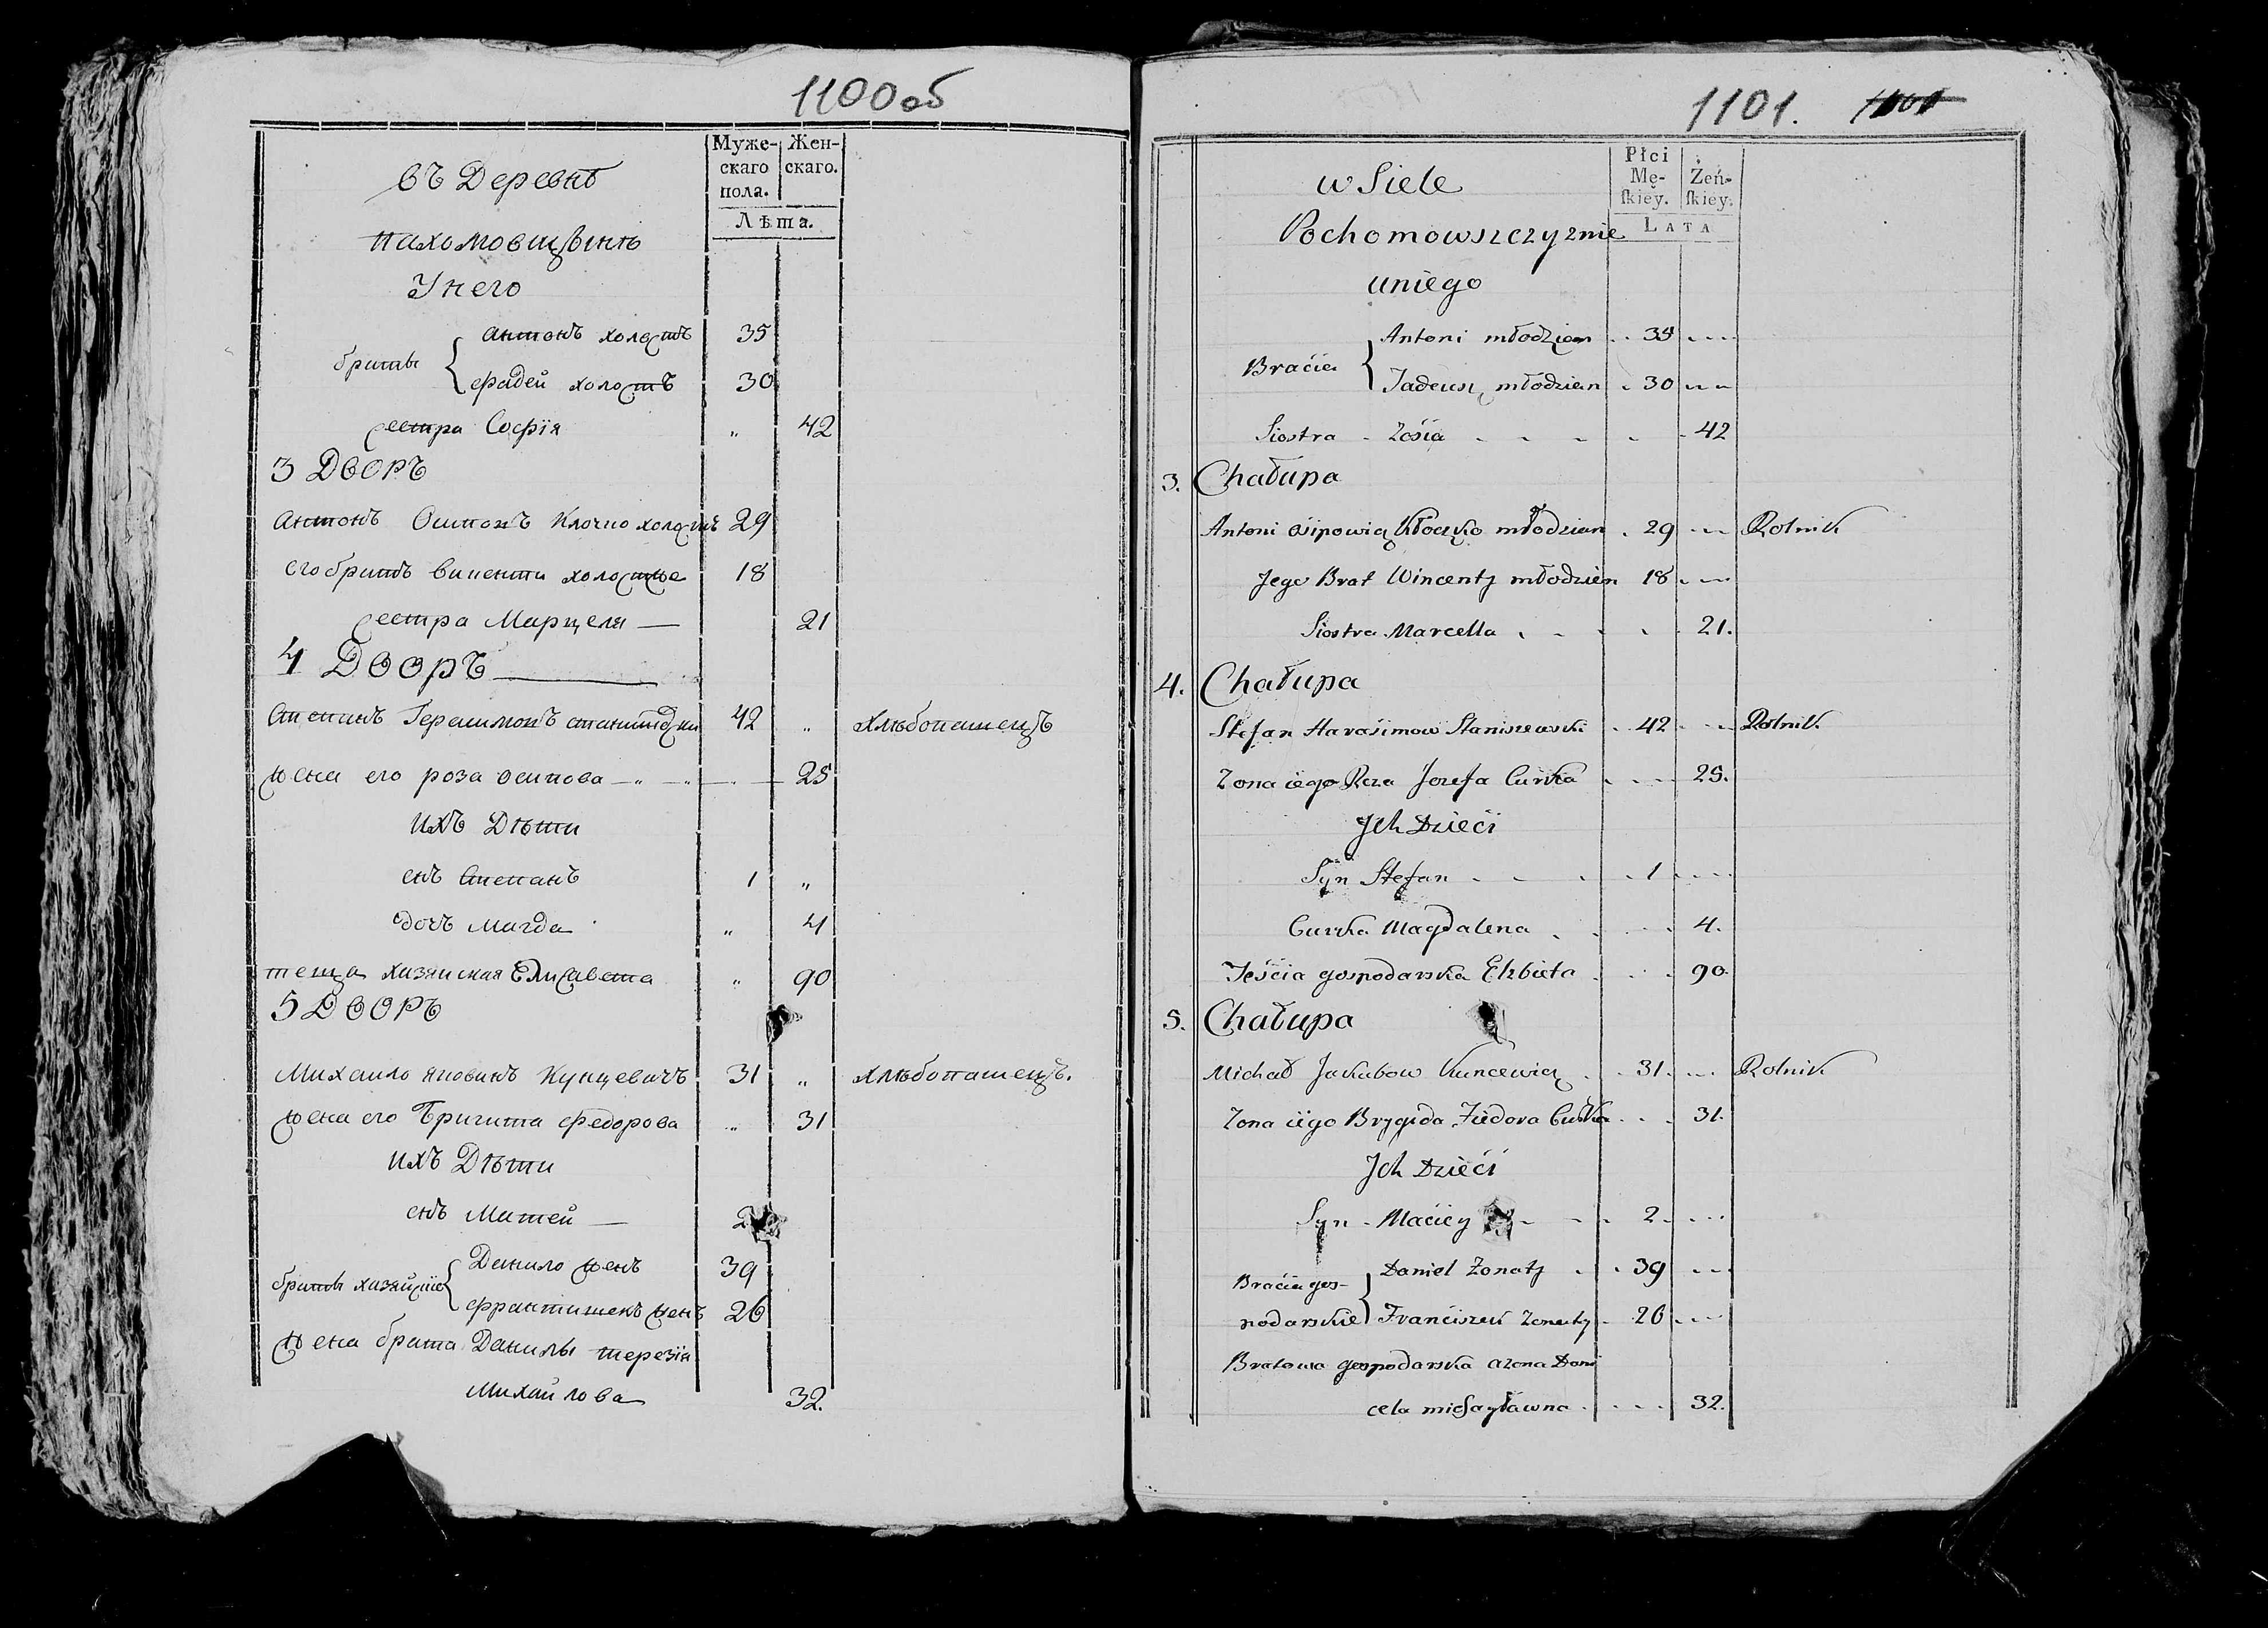 1100об
Муже-
скаго
пола.
Жен-
скаго.
Лѣта.
въ Деревнѣ
пахомовщизнѣ
У него
братьи { антонъ холостъ 35
фадей холостъ 30
сестра Софія " 42
3 Дворъ
антонъ Осиповъ Клочко холостъ 29
его братъ викенти холостые 18
сестра Марцеля — 21
4 Дворъ
Степанъ Герасимовъ станишевски 42 " хлѣбопашецъ
жена его роза осипова — " — " — 25
ихъ Дѣти
снъ Степанъ 1 "
дочъ Магда " 4
теща хазяиская Елисавета " 90
5 Дворъ
Михаило яковивъ Кунцевичъ 31 " хлѣбопашецъ.
жена его Бригита федорова " 31
ихъ Дѣти
снъ Матей — 2
братьи хазяйские { Данило женъ 39
франтишекъ женъ 26
жена брата Данилы терезія
Михаилова 32.
1101. 1101
Płci
Mę-
ſkiey.
Żeń-
ſkiey.
LATA
w Siele
Pochomowszczyznie
uniego
Bracia { Antoni młodzian . . 35 . . . .
Tadeusz młodzian . 30 . . .
Siostra - Zosia - - - - - 42
3. Chałupa
Antoni Osipowicz Kłoczko młodzian . 29 - - - Rolnik
Jego Brat Wincenty młodzien 18 . - -
Siostra Marcella . - - . . 21.
4. Chałupa
Stefan Harasimow Staniszewski . . 42 - - - Rolnik
Zona iego Roza Jozefa Curka . . . - 25.
Jch Dzieci
Syn Stefan - - . . 1 . . . .
Curka Magdalena . . . . . 4.
Teścia gospodarska Elzbieta . . . . 90.
5. Chałupa
Michał Jakubow Kuncewicz . . 31. . . . Rolnik
Zona iego Brygida Fiedora Curka . . . 31.
Jch Dzieci
Syn - Maciey - - . 2. . . .
Bracia gos-
podarskie } Daniel Zonaty . . 39 . . .
Franciszek Zonaty . . 26 . . .
Bratowa gospodarska a zona Dani
cela michayławna . . . . 32.